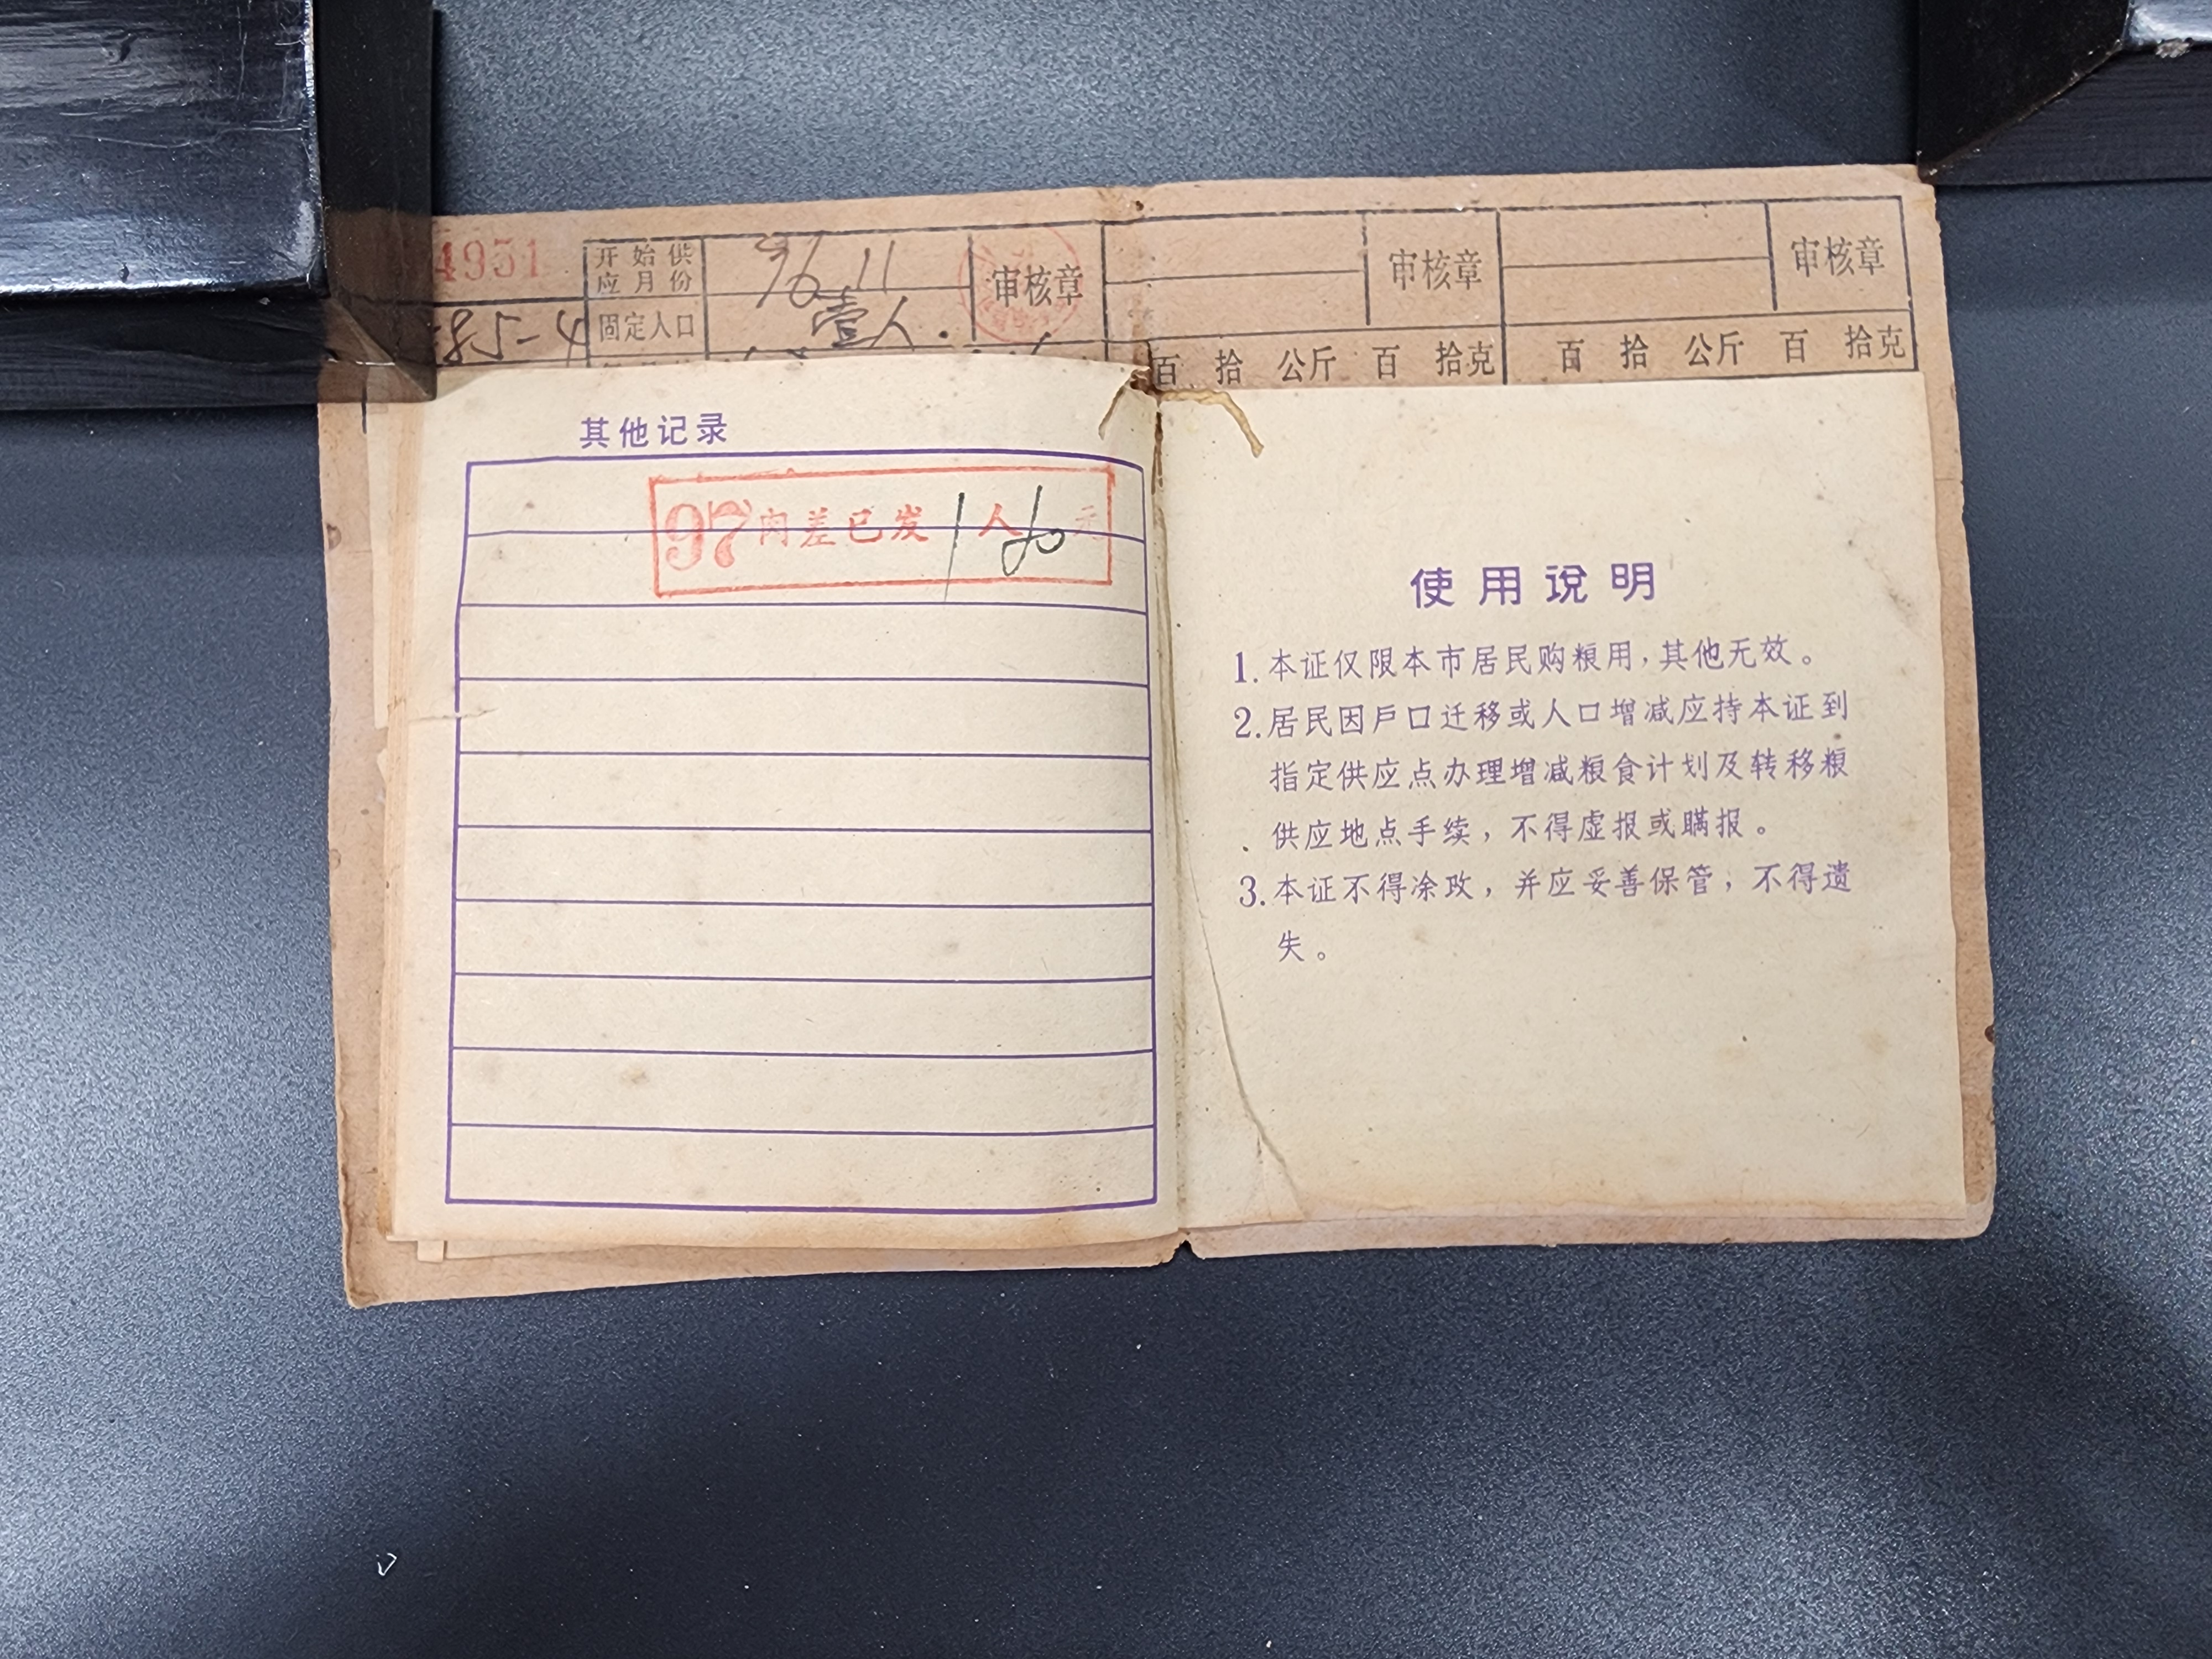 4951
开始供应月份
96.11
审核章
审核章
审核章
85-4
固定人口
壹人.
百 拾 公斤 百 拾克
百 拾 公斤 百 拾克
其他记录
97肉差已发1人 元
使用说明
1.本证仅限本市居民购粮用,其他无效。
2.居民因戶口迁移或人口增减应持本证到
指定供应点办理增减粮食计划及转移粮
供应地点手续,不得虚报或瞒报。
3.本证不得凃改,并应妥善保管,不得遗
失。